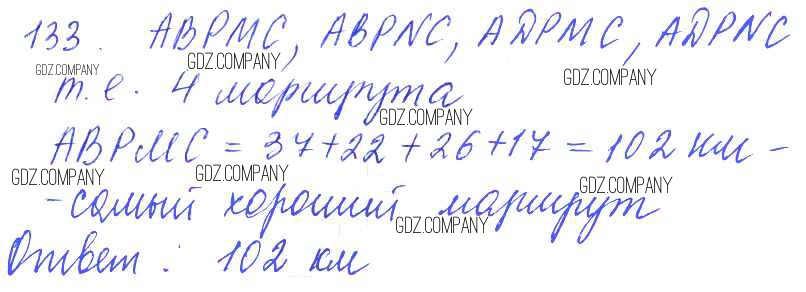 133. АВРМС, АВРNС, АДРМС, АДРNС
GDZ.COMPANY GDZ.COMPANY GDZ.COMPANY
т.е. 4 маршрута
GDZ.COMPANY
АВРМС = 37+22+26+17 = 102 км -
GDZ.COMPANY GDZ.COMPANY
- самый хороший маршрут
GDZ.COMPANY
Ответ: 102 км